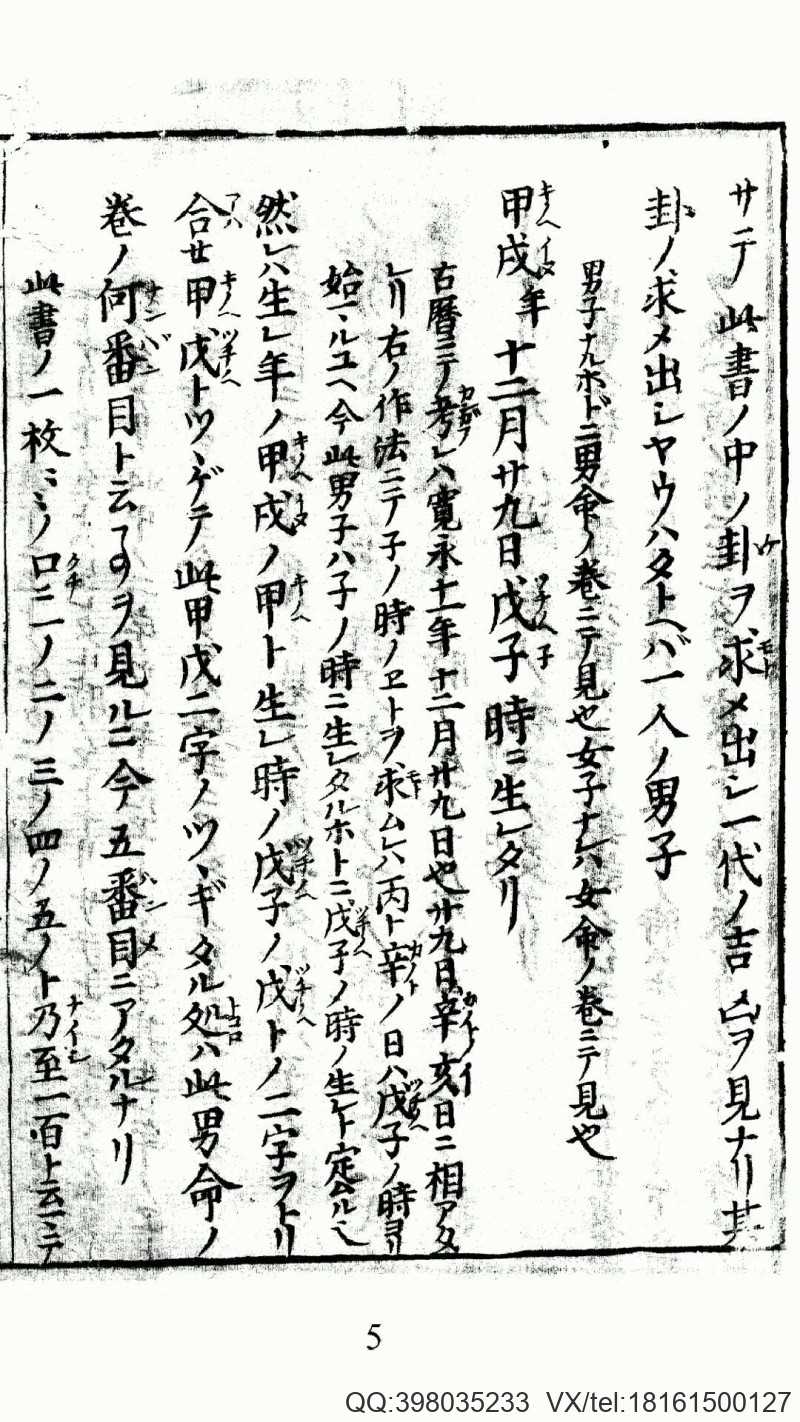 サテ此書ノ中ノ卦ヲ求メ出シ一代ノ吉凶ヲ見ナリ其
卦ノ求メ出シヤウハタトヘバ一人ノ男子
男子ナルホドニ男命ノ巻ニテ見也女子ナレハ女命ノ巻ニテ見也
甲戌年 十二月廿九日戊子時ニ生レタリ
古暦ニテ考レハ寛永十一年十二月廿九日也廿九日辛亥日ニ相アタ
レリ右ノ作法ニテ子ノ時ノヱトヲ求ムレハ丙ト辛ノ日ハ戊子ノ時ヨリ
始マルユヘ今此男子ハ子ノ時ニ生レタルホトニ戊子ノ時ノ生レト定ムル也
然レハ生レ年ノ甲戌ノ甲ト生レ時ノ戊子ノ戊トノ二字ヲトリ
合セ甲戊トツヾゲテ此甲戊二字ノツヾギタル処ハ此男命ノ
巻ノ何番目ト云フヿヲ見ルニ今五番目ニアタルナリ
此書ノ一枚〻〻ノ口ニ一ノ二ノ三ノ四ノ五ノト乃至一百ト云マテ
5
QQ:398035233 VX/tel:18161500127